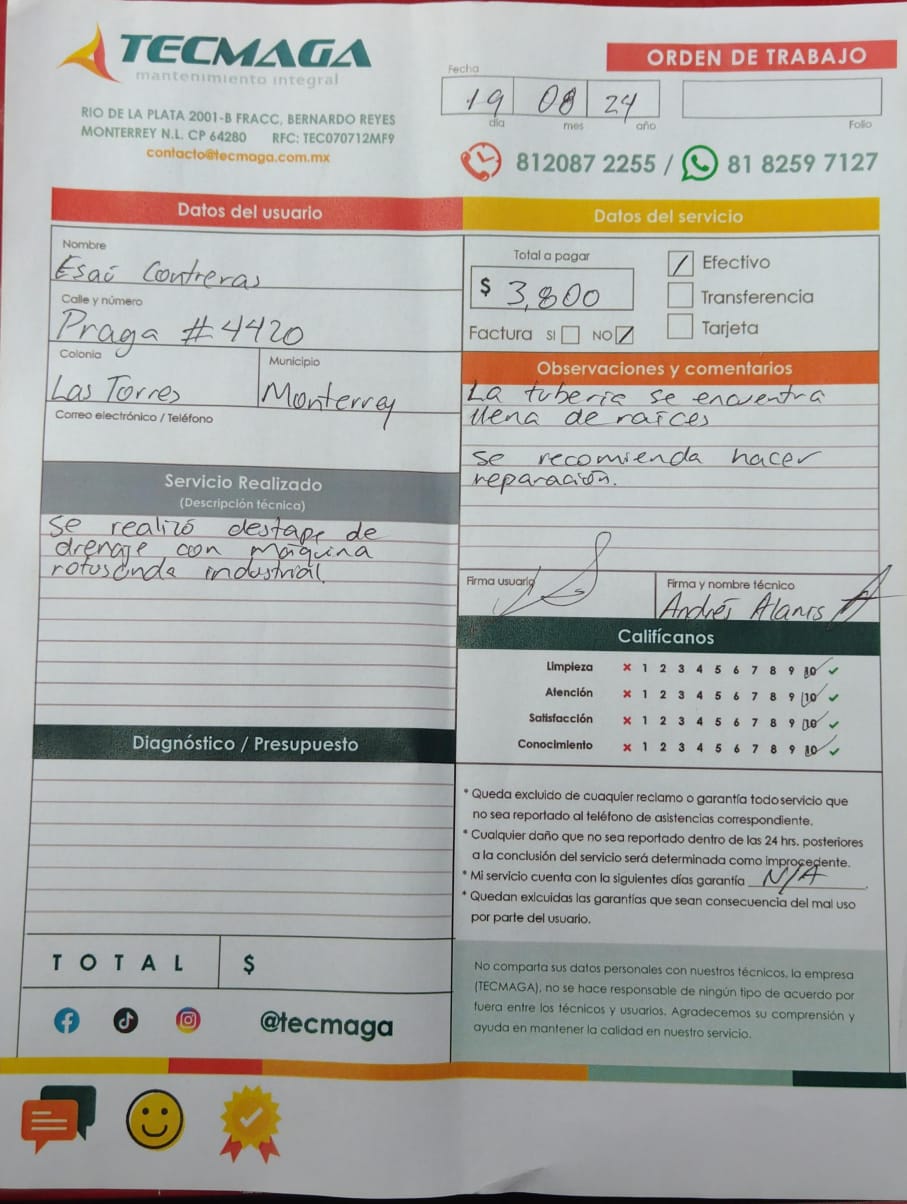 TECMAGA
mantenimiento integral
RIO DE LA PLATA 2001-B FRACC, BERNARDO REYES
MONTERREY N.L. CP 64280 RFC: TEC070712MF9
contacto@tecmaga.com.mx
ORDEN DE TRABAJO
Fecha
19 08 24
día mes año
Folio
812087 2255 / 81 8259 7127
Datos del usuario
Nombre
Esaú Contreras
Calle y número
Praga #4420
Colonia Municipio
Las Torres Monterrey
Correo electrónico / Teléfono
Servicio Realizado
(Descripción técnica)
Se realizó destape de
drenaje con máquina
rotosonda industrial.
Diagnóstico / Presupuesto
TOTAL $
@tecmaga
Datos del servicio
Total a pagar
$ 3,800
Efectivo
Transferencia
Tarjeta
Factura SI NO
Observaciones y comentarios
La tubería se encuentra
llena de raíces
se recomienda hacer
reparación.
Firma usuario Firma y nombre técnico
Andrés Alanis
Califícanos
Limpieza 1 2 3 4 5 6 7 8 9 10
Atención 1 2 3 4 5 6 7 8 9 10
Satisfacción 1 2 3 4 5 6 7 8 9 10
Conocimiento 1 2 3 4 5 6 7 8 9 10
* Queda excluido de cuaquier reclamo o garantía todo servicio que
no sea reportado al teléfono de asistencias correspondiente.
* Cualquier daño que no sea reportado dentro de las 24 hrs. posteriores
a la conclusión del servicio será determinada como improcedente.
* Mi servicio cuenta con la siguientes días garantía N/A
* Quedan exlcuidas las garantías que sean consecuencia del mal uso
por parte del usuario.
No comparta sus datos personales con nuestros técnicos, la empresa
(TECMAGA), no se hace responsable de ningún tipo de acuerdo por
fuera entre los técnicos y usuarios. Agradecemos su comprensión y
ayuda en mantener la calidad en nuestro servicio.